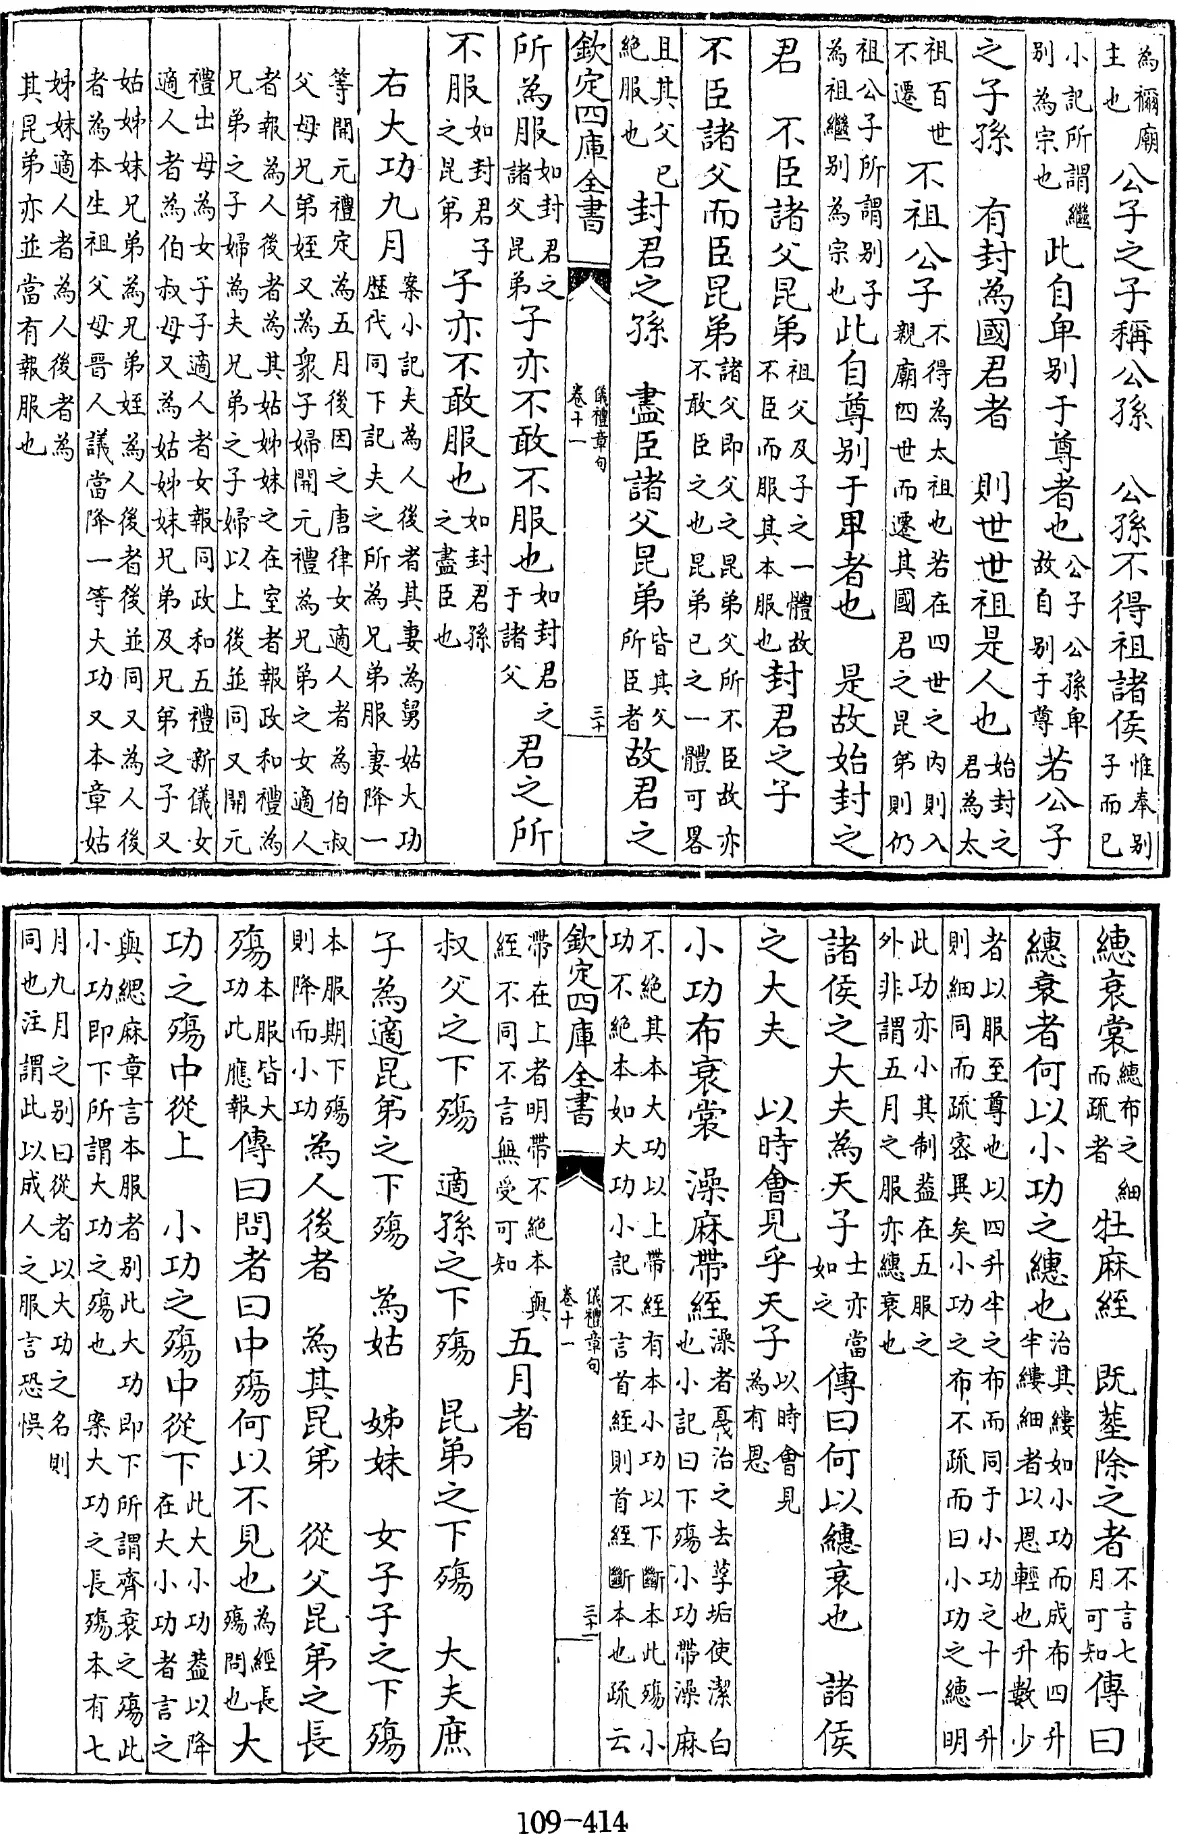 為禰廟主也公子之子稱公孫　公孫不得祖諸侯惟奉别子而已
小記所謂繼别為宗也此自卑别于尊者也公子公孫卑故自别于尊若公子
之子孫　有封為國君者　則世世祖是人也始封之君為太
祖百世不遷不祖公子不得為太祖也若在四世之内則入親廟四世而遷其國君之昆弟則仍
祖公子所謂别子為祖繼别為宗也此自尊别于卑者也　是故始封之
君　不臣諸父昆弟祖父及子之一體故不臣而服其本服也封君之子
不臣諸父而臣昆弟諸父即父之昆弟父所不臣故亦不敢臣之也昆弟已之一體可畧
且其父已絶服也封君之孫　盡臣諸父昆弟皆其父所臣者故君之
欽定四庫全書　儀禮章句卷十一　三十
所為服如封君之諸父昆弟子亦不敢不服也如封君之于諸父君之所
不服如封君子之昆弟子亦不敢服也如封君孫之盡臣也
右大功九月案小記夫為人後者其妻為舅姑大功歴代同下記夫之所為兄弟服妻降一
等開元禮定為五月後因之唐律女適人者為伯叔父母兄弟姪又為衆子婦開元禮為兄弟之女適人
者報為人後者為其姑姊妹之在室者報政和禮為兄弟之子婦為夫兄弟之子婦以上後並同又開元
禮出母為女子子適人者女報同政和五禮新儀女適人者為伯叔母又為姑姊妹兄弟及兄弟之子又
姑姊妹兄弟為兄弟姪為人後者後並同又為人後者為本生祖父母晉人議當降一等大功又本章姑
姊妹適人者為人後者為其昆弟亦並當有報服也
繐衰裳繐布之細而疏者牡麻絰　既塟除之者不言七月可知傳曰
繐衰者何以小功之繐也治其縷如小功而成布四升半縷細者以恩輕也升數少
者以服至尊也以四升半之布而同于小功之十一升則細同而疏宻異矣小功之布不疏而曰小功之繐明
此功亦小其制葢在五服之外非謂五月之服亦繐衰也
諸侯之大夫為天子士亦當如之傳曰何以繐衰也　諸侯
之大夫　以時會見乎天子以時會見為有恩
小功布衰裳　澡麻帶絰澡者戞治之去莩垢使潔白也小記曰下殤小功帶澡麻
不絶其本大功以上帶絰有本小功以下斷本此殤小功不絶本如大功小記不言首絰則首絰斷本也疏云
欽定四庫全書　儀禮章句卷十一　三十一
帶在上者明帶不絶本與絰不同不言無受可知五月者
叔父之下殤　適孫之下殤　昆弟之下殤　大夫庶
子為適昆弟之下殤　為姑　姊妹　女子子之下殤
本服期下殤則降而小功為人後者　為其昆弟　從父昆弟之長
殤本服皆大功此應報傳曰問者曰中殤何以不見也為經長殤問也大
功之殤中從上　小功之殤中從下此大小功葢以降在大小功者言之
與緦麻章言本服者别此大功即下所謂齊衰之殤此小功即下所謂大功之殤也　案大功之長殤本有七
月九月之别曰從者以大功之名則同也注謂此以成人之服言恐悞
109-414